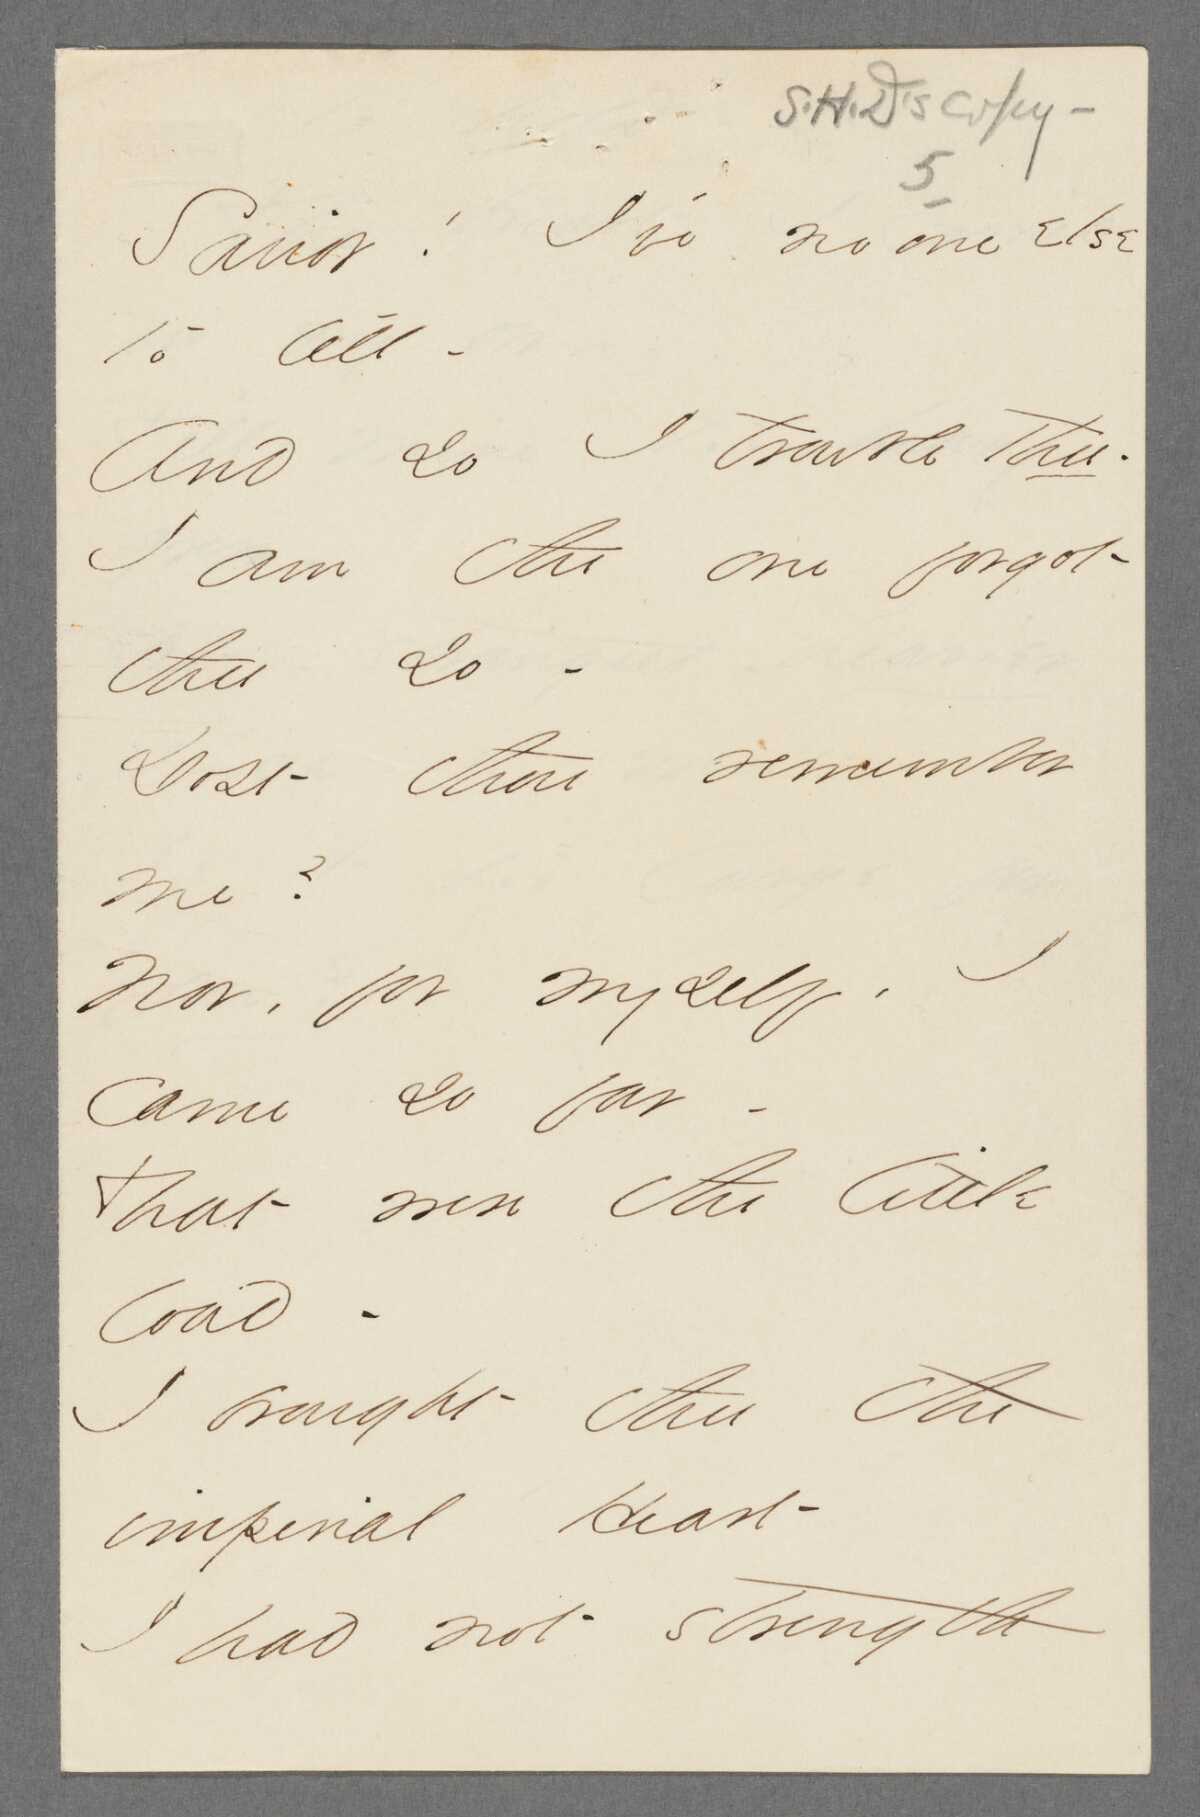 S.H.D's copy -
5
Savior! I've no one else
to tell -
And so I trouble Thee.
I am the one forgot
thee so -
Dost thou remember
me?
Nor, for myself, I
came so far -
That were the little
load -
I brought thee the
imperial Heart
I had not strength